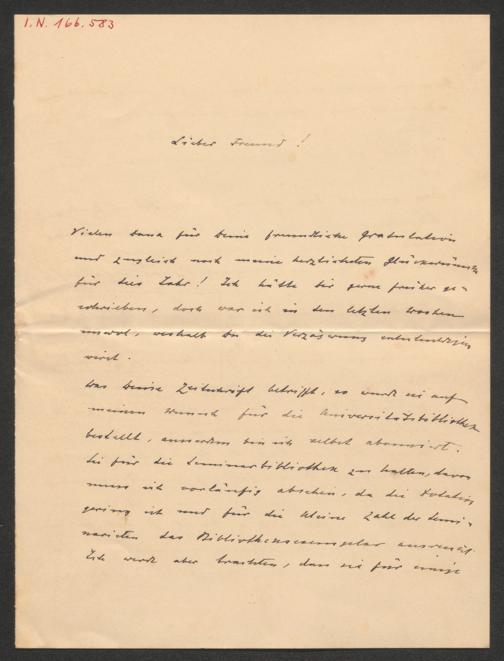 I.N. 166.583
Lieber Freund!
Vielen Dank für Deine freundliche Gratulation
und zugleich noch meine herzlichsten Glückwünsche
für dies Jahr! Ich hätte Dir gerne früher ge-
schrieben, doch war ich in den letzten Wochen
unwol, weshalb Du die Verzögerung entschuldigen
wirst.
Was Deine Zeitschrift betrifft, so wurde sie auf
meinen Wunsch für die Universitätsbibliothek
bestellt, ausserdem bin ich selbst abonniert.
Sie für die Seminarbibliothek zu halten, davon
muss ich vorläufig absehen, da die Dotation
gering ist und für die kleine Zahl der Semi-
naristen das Bibliotheksexemplar ausreicht.
Ich werde aber trachten, dass sie für einige